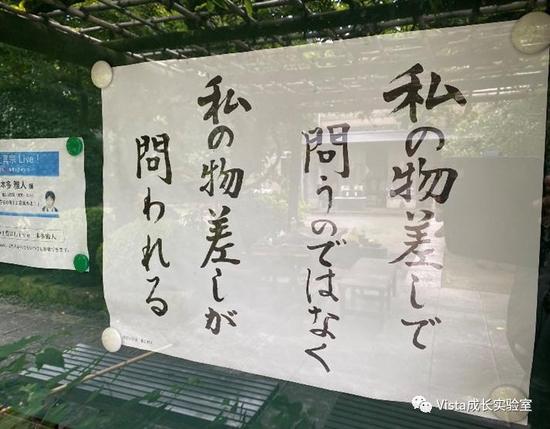 私の物差しで
問うのではなく
私の物差しが
問われる
真宗 Live!
本多 雅人
Vista成长实验室